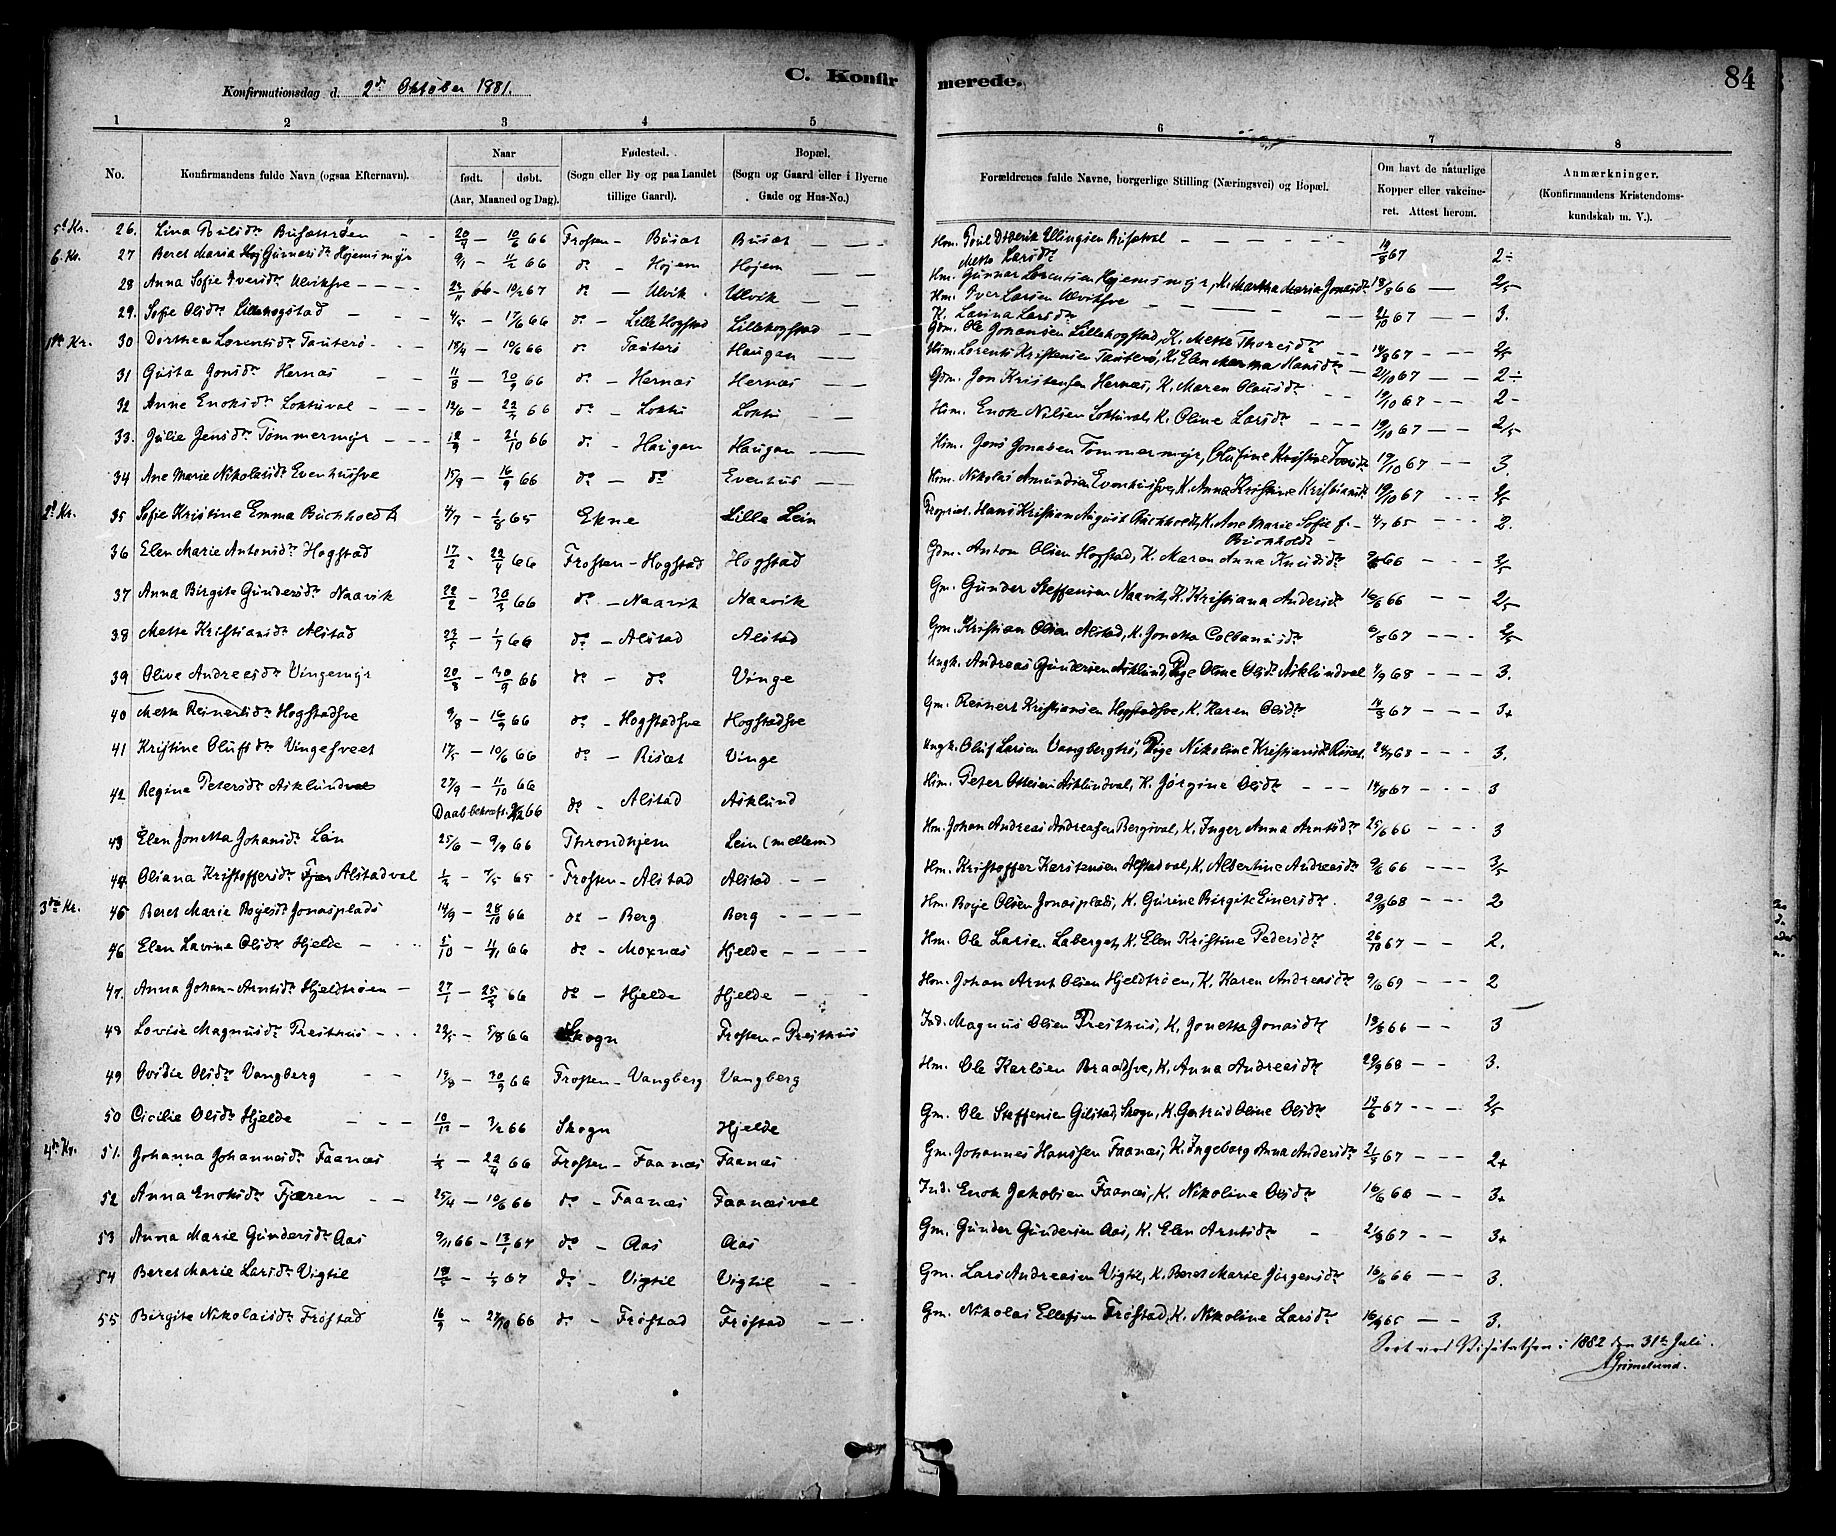 C. Konfirmerede. 84
Konfirmationsdag d. 2d Oktober 1881.
1 2 3 4 5 6 7 8
No. Konfirmandens fulde Navn (ogsaa Efternavn). Naar født. døbt. (Aar, Maaned og Dag). Fødested. (Sogn eller By og paa Landet tillige Gaard). Bopæl. (Sogn og Gaard eller i Byerne Gade og Hus-No.) Forældrenes fulde Navne, borgerlige Stilling (Næringsvei) og Bopæl. Om havt de naturlige Kopper eller vakcineret. Attest herom. Anmærkninger. (Konfirmandens Kristendomskundskab m. V.).
5t Kr. 26. Lina 10/6 66 Frosten - Busat Busat Hm. Ellingsen Mette Larsdr 67
6. Kr. 27 Beret Maria Gunnarsdr Højemsmyr 9/1 - 11/2 66 do - Højem Højem Hm. Gunnar Lorentsen Højemsmyr, K. Martha Maria Jonasdr 66 2/5
28 Anna Sofie Iversdr Ulviksve 66 - 10/2 67 do - Ulvik Ulvik Hm. Iver Larsen Ulviksve K. Lavina Larsdr 21/10 67 3.
29. Sofie Olsdr Lillehogstad 4/5 - 17/6 66 do - Lille Hogstad Lillehogstad Gdm. Ole Johansen Lillehogstad, K. Mette Thoresdr 67 2/5
1ste Kr. 30 Dorthea Lorentsdr Tauterø 18/4 - 10/6 66 do Tauterø Haugan Hm. Lorents Kristensen Tauterø, K. Elen Martha Hansdr 21/10 67 2÷
31 Gusta Jonsdr Hernes 11/8 - 30/9 66 do - Hernes Hernes Gdm. Jon Kristensen Hernes, K. Maren Olausdr 19/10 67 2-
32 Anne Enoksdr Loktuval 12/6 - 22/7 66 do - Loktu Loktu Hm. Enok Nilsen Loktuval, K. Oline Larsdr 19/10 67 2/5
33. Julie Jensdr Tømmermyr 12/9 - 21/10 66 do - Haugan Haugan Hm. Jens Jonasen Tømmermyr, Olufine Kristine 19/10 67 3.
34 Ane Marie Nikolaisdr Evenhussve 15/8 - 16/9 66 do - do Evenhus Hm. Nikolai Amundsen Evenhussve, K. Anna Kristine Kristiansdr 19/10 67
2d Kr. 35 Sofie Kristine Emma Buchholdt 4/7 - 1/8 65 Ekne Lille Lein Propriet. Hans Kristian August Buchholdt, K. Ane Marie Sofie f. Buchholdt 4/7 65 2.
36 Elen Marie Antonsdr Hogstad 17/2 - 22/4 66 Frosten - Hogstad Hogstad Gdm. Anton Olsen Hogstad, K. Maren Anna Knudsdr 66
37 Anna Birgite Gundersdr Naavik 22/2 - 30/3 66 do - Naavik Naavik Gm. Gunder Steffensen Naavik, K. Kristiana Andersdr 16/6 66 2/5
38 Mette Kristiansdr Alstad 23/5 - 1/7 66 do - Alstad Alstad Gm. Kristian Olsen Alstad, K. Jonetta Colbanusdr 6/8 67 2/5
39 Olive Andreasdr Vingemyr 20/8 - 30/9 66 do - do Vinge Ungk. Andreas Gundersen Asklund, Pige Oline Olsdr Asklundval 1/9 68 3.
40 Mette Reinertsdr Hogstadsve 9/8 - 16/9 66 do - Hogstadsve Hogstadsve Gm. Reinert Kristiansen Hogstadsve, K. Karen Olsdr 67 3+
41 Kristine Olufsdr Vingesveet 17/5 - 10/6 66 do - Risat Vinge Ungk. Oluf Larsen Vangbergtrø, Pige Nikoline Kristiansdr Risat. 3.
42 Regine Petersdr Asklundval 27/9 - 11/10 66 Daab bekræft. 66 do - Alstad Asklund Hm. Peter Ottesen Asklundval, K. Jørgine Olsdr 14/8 67 3
43 Elen Jonetta Johansdr Lein 25/6 - 9/9 66 Throndhjem Lein (mellem) Hm. Johan Andreas Andreasen Bergsval, K. Inger Anna Arntsdr 25/6 66 3
44 Oliana Kristoffersdr Alstadval 1/2 - 7/5 65 Frosten - Alstad Alstad Hm. Kristoffer Karstensen Alstadval, K. Albertine Andreasdr 9/6 66 3/5
3die Kr. 45 Beret Marie Bojesdr Jonasplads 14/9 - 28/10 66 do - Berg Berg Hm. Boje Olsen Jonasplads, K. Gurine Birgite Einersdr. 29/9 68 2
46 Elen Lavine Olsdr Hjelde 5/10 - 4/11 66 do - Moxnæs Hjelde Hm. Ole Larsen Laberget, K. Elen Kristine Pedersdr 26/10 67 2.
47. Anna Johan-Arntsdr Hjeldtrøen 27/1 - 25/3 66 do - Hjelde Hjelde Hm. Johan Arnt Olsen Hjeldtrøen, K. Karen Andreasdr 9/6 69 2
48 Lovise Magnusdr Presthus 22/5 - 5/8 66 Skogn Frosten - Presthus Ind. Magnus Olsen Presthus, K. Jonetta Jonasdr 66 3
49 Ovidie Olsdr Vangberg 19/8 - 30/9 66 Frosten - Vangberg Vangberg Hm. Ole Karlsen Braadsve, K. Anna Andreasdr 29/9 68 3.
50 Cicilie Olsdr Hjelde 10/12 - 3/2 66 Skogn Hjelde Gm. Ole Steffensen Gilstad, Skogn, K. Gertrud Oline Olsdr 19/6 67 2/5
4de Kr. 51. Johanna Johannesdr Faanæs 22/4 66 Frosten - Faanæs Faanæs Gm. Johannes Hanssen Faanæs, K. Ingeborg Anna Andersdr 67 2+
52 Anna Enoksdr Fjæren 25/4 - 10/6 66 do - Faanæs Faanæsval Ind. Enok Jakobsen Faanæs, K. Nikoline Olsdr 16/6 66 3+
53 Anna Marie Gundersdr Aas 9/11 66 - 13/1 67 do - Aas Aas Gm. Gunder Gundersen Aas, K. Elen Arntsdr 21/9 67 3+
54 Beret Marie Larsdr Vigtil 67 do - Vigtil Vigtil Gm. Lars Andreasen Vigtil, K. Beret Marie Jørgensdr 16/6 66 3.
55 Birgite Nikolaisdr Frøstad 16/9 - 21/10 66 do - Frøstad Frøstad Gm. Nikolai Ellefsen Frøstad, K. Nikoline Larsdr 3.
Seet ved Visitatsen i 1882 den 31te Juli.
Grimelund.